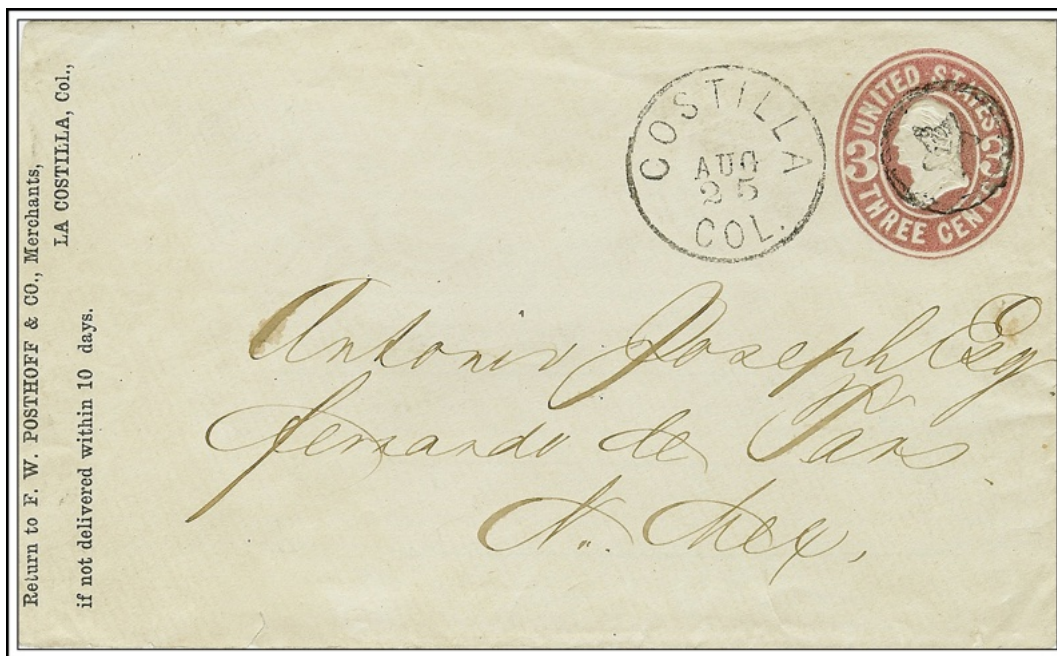 Return to F. W. POSTHOFF & CO., Merchants,
LA COSTILLA, Col.,
if not delivered within 10 days.
COSTILLA
AUG
25
COL.
UNITED STATES
3 3
THREE CENT
Antonio Joseph Esq
Fernando de Taos
N. Mex,